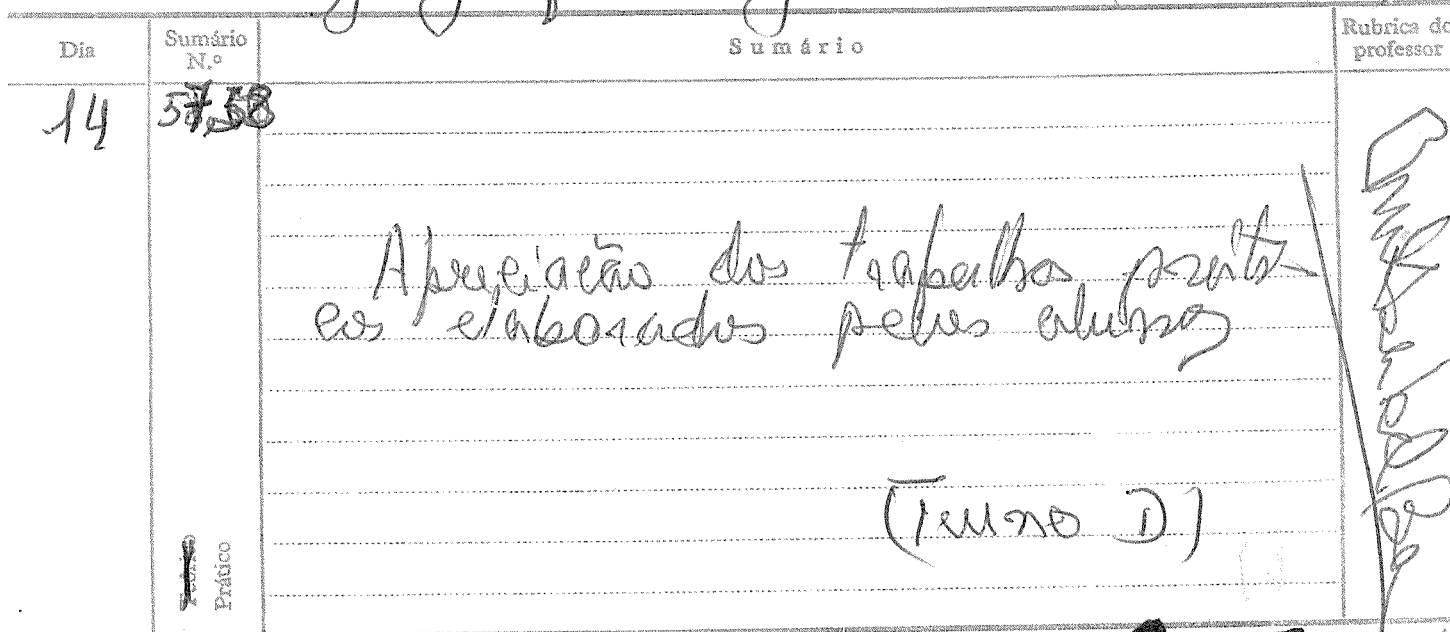 Dia
Sumário
N.º
Sumário
Rubrica do
professor
14
57,58
Apreciação dos trabalhos práti-
cos elaborados pelos alunos
(Turno D)
Teórico
Prático